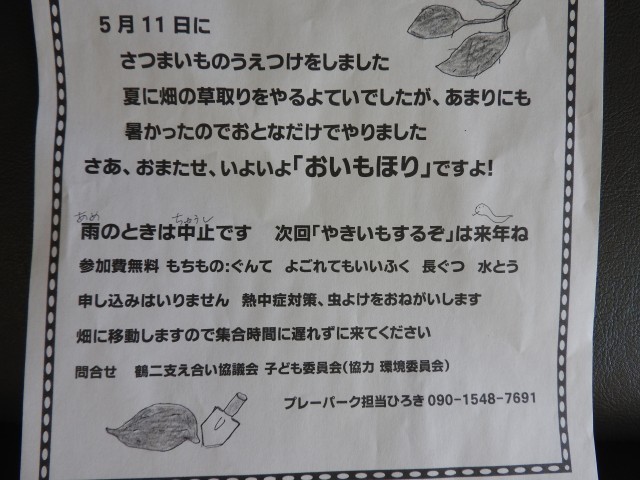 5月11日に
さつまいものうえつけをしました
夏に畑の草取りをやるよていでしたが、あまりにも
暑かったのでおとなだけでやりました
さあ、おまたせ、いよいよ「おいもほり」ですよ!
あめ ちゅうし
雨のときは中止です 次回「やきいもするぞ」は来年ね
参加費無料 もちもの:ぐんて よごれてもいいふく 長ぐつ 水とう
申し込みはいりません 熱中症対策、虫よけをおねがいします
畑に移動しますので集合時間に遅れずに来てください
問合せ 鶴二支え合い協議会 子ども委員会(協力 環境委員会)
プレーパーク担当ひろき 090-1548-7691